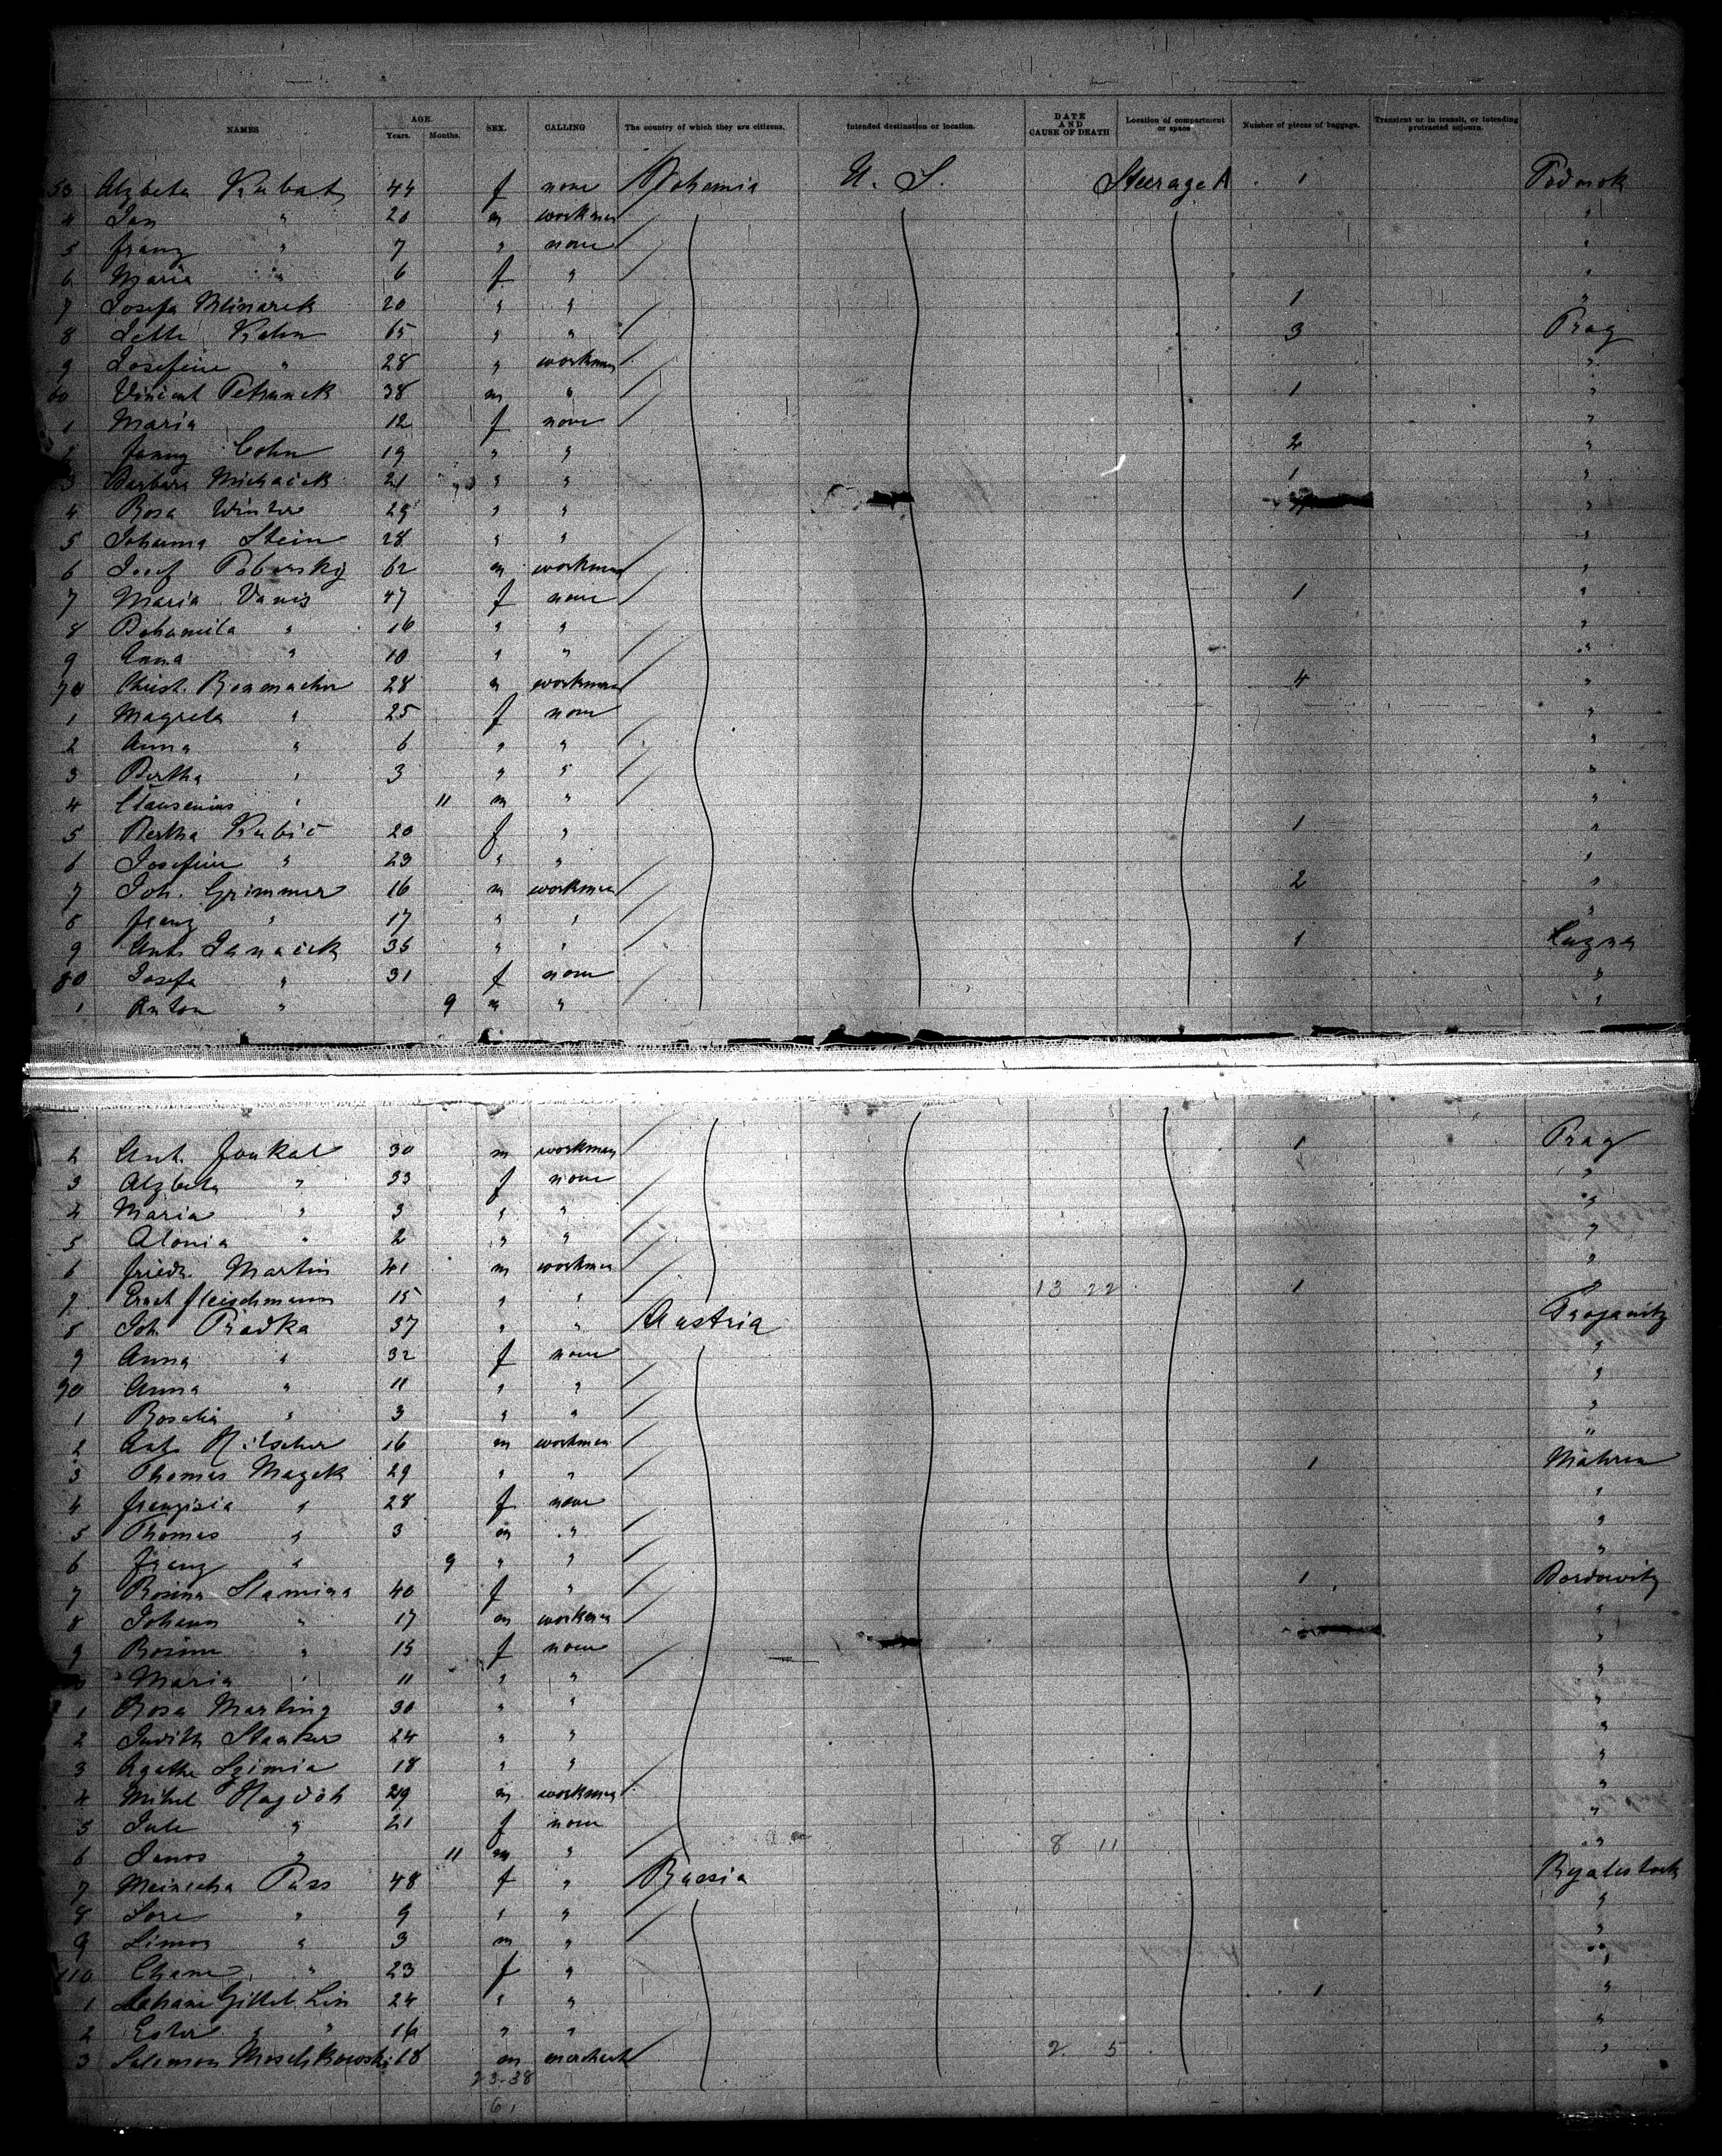 NAMES AGE. Years. Months. SEX. CALLING The country of which they are citizens. Intended destination or location. DATE AND CAUSE OF DEATH Location of compartment or space Number of pieces of baggage. Transient or in transit, or intending protracted sojourn.
53 Alzbeta Kubat 44 f none Bohemia U. S. Steerage A 1
4 Jan " 20 m workman "
5 Franz " 7 " none "
6 Maria " 6 f " "
7 Josefa Mlinarek 20 " " 1 "
8 Jette Kohn 65 " " 3 Prag
9 Josefine " 28 " workman "
60 Vincent Petranek 38 m " 1 "
1 Maria 12 f none "
2 Fanny Cohn 19 " " 2 "
3 Barbara 21 " " 1 "
4 Rosa Winter 29 " " "
5 Johanna Stein 28 " " "
6 Josef Pobersky 62 m workman "
7 Maria Vanis 47 f none 1 "
8 " 16 " " "
9 Anna " 10 " " "
70 Christ. 28 m workman 4 "
1 Magreta " 25 f none "
2 Anna " 6 " " "
3 Bertha " 3 " " "
4 " 11 m " "
5 Bertha Kubic 20 f " 1 "
6 Josefine " 23 " " "
7 Joh. Grimmer 16 m workman 2 "
8 Franz " 17 " " "
9 Ant. Janacek 35 " " 1
80 Josefa " 31 f none "
1 Anton " 9 m " "
2 Ant. Foukal 30 m workman 1 Prag
3 Alzbeta " 33 f none "
4 Maria " 3 " " "
5 " 2 " " "
6 Friedr. Martin 41 m workman "
7 Ernst Fleischmann 15 " " 13 22 1
8 Joh. 37 " " Austria
9 Anna " 32 f none "
90 Anna " 11 " " "
1 Rosalia " 3 " " "
2 Ant. Hilscher 16 m workman "
3 Thomas Mazek 29 " " 1 Mähren
4 " 28 f none "
5 Thomas " 3 m " "
6 Franz " 9 " " "
7 Rosina Slamina 40 f " 1
8 Johann " 17 m workman "
9 Rosina " 15 f none "
Maria " 11 " " "
1 Rosa Marting 30 " " "
2 Judith 24 " " "
3 Agathe 18 " " "
4 Mihal 29 m workman "
5 Jule " 21 f none "
6 Janos " 11 m " 8 11 "
7 Pass 48 f " Russia Byalistock
8 Sore " 9 " " "
9 Simon " 3 m " "
110 Chane " 23 f " "
1 24 " " 1 "
2 Ester " " 16 " " "
3 Salomon Moschkowski 18 m merchant 2 5 "
23-38
61